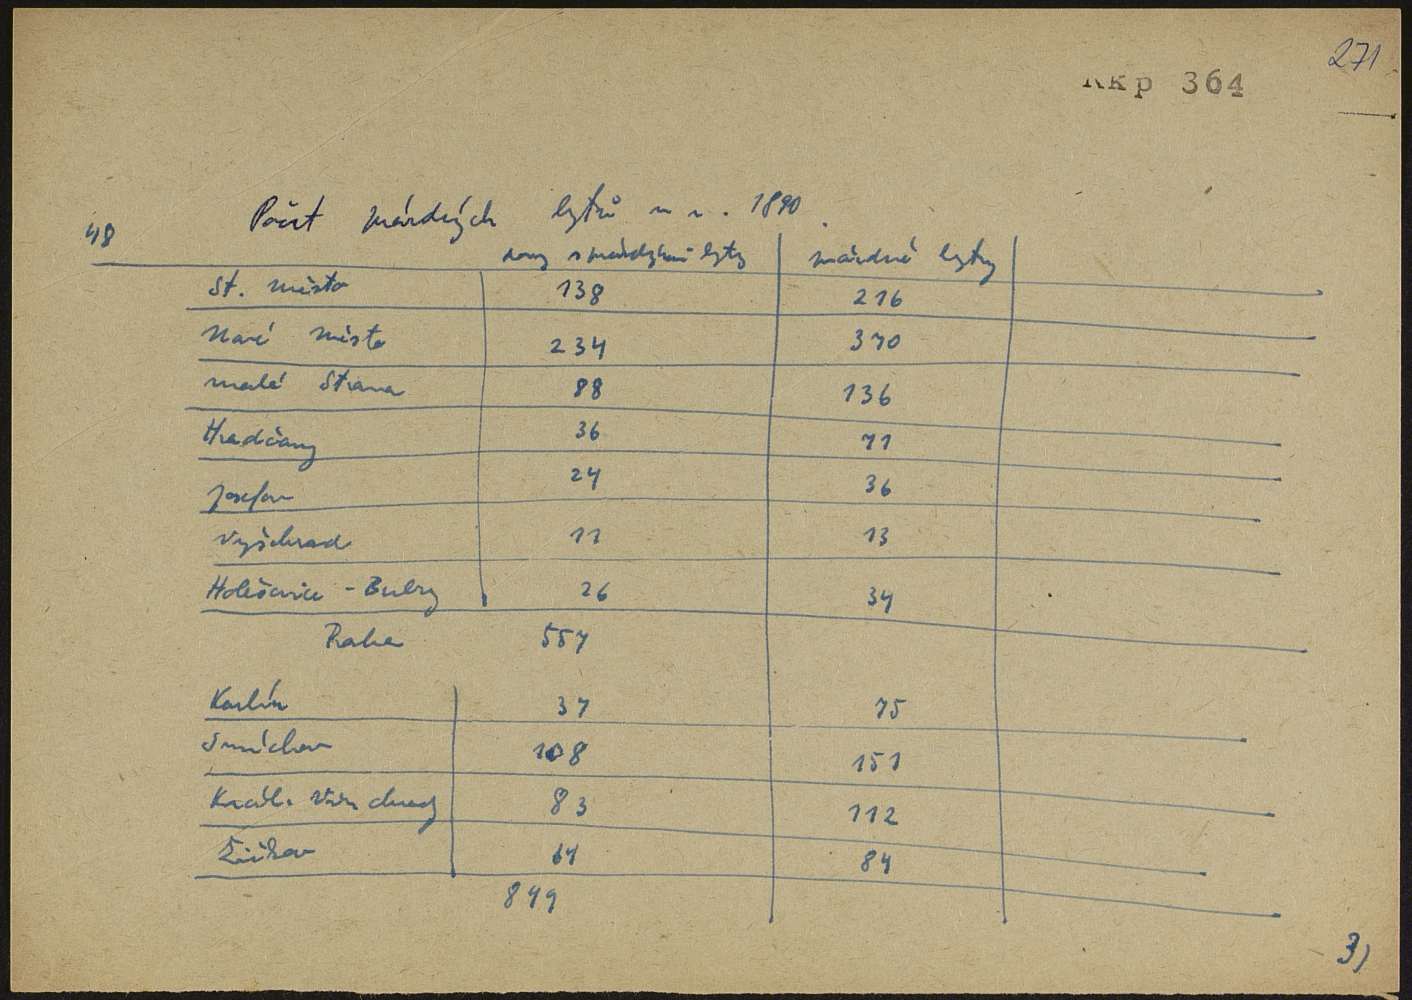 271
KKp 364
48 Počet prázdných bytů v r. 1890.
domy s prázdnými byty prázdné byty
St. město 138 216
Nové město 234 370
malá Strana 88 136
Hradčany 36 71
Josefov 24 36
Vyšehrad 11 13
Holešovice - Bubny 26 34
Praha 557
Karlín 37 75
Smíchov 108 151
Král. Vinohrady 83 112
Žižkov 64 84
849
3)